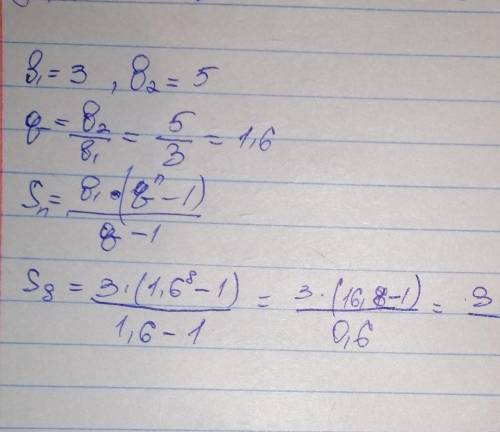 b₁ = 3 , b₂ = 5
q = b₂/b₁ = 5/3 = 1,6
Sₙ = b₁·(qⁿ - 1)/q - 1
S₈ = 3·(1,6⁸ - 1)/1,6 - 1 = 3·(16,8 - 1)/0,6 =